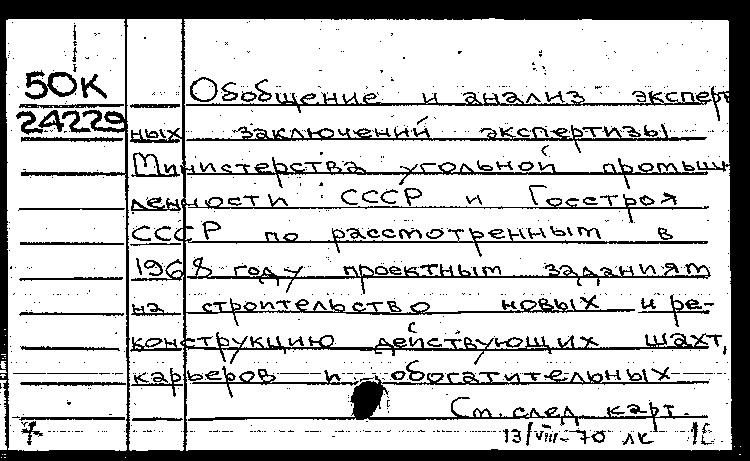 50К Обобщение и анализ эксперт
24229 ных заключений экспертизы
Министерства угольной промыш
ленности СССР и Госстроя
СССР по рассмотренным в
1968 году проектным заданиям
на строительство новых и ре-
конструкцию действующих шахт,
карьеров и обогатительных
См. след. карт.
13/VIII-70 лк